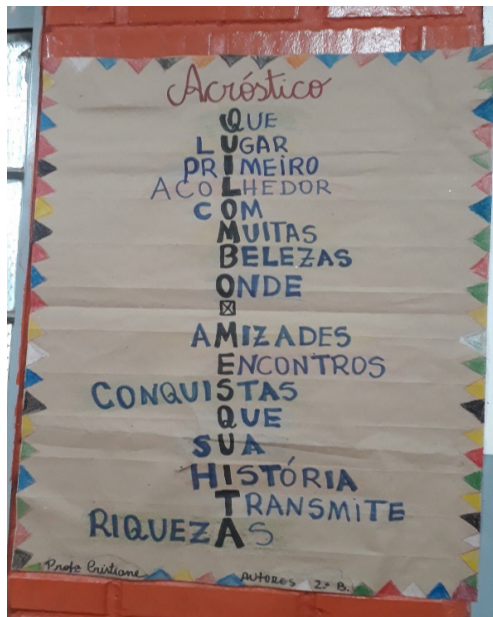 Acróstico
QUE
LUGAR
PRIMEIRO
ACOLHEDOR
COM
MUITAS
BELEZAS
ONDE
AMIZADES
ENCONTROS
CONQUISTAS
QUE
SUA
HISTÓRIA
TRANSMITE
RIQUEZAS
Profa Cristiane AUTORES 2º B.